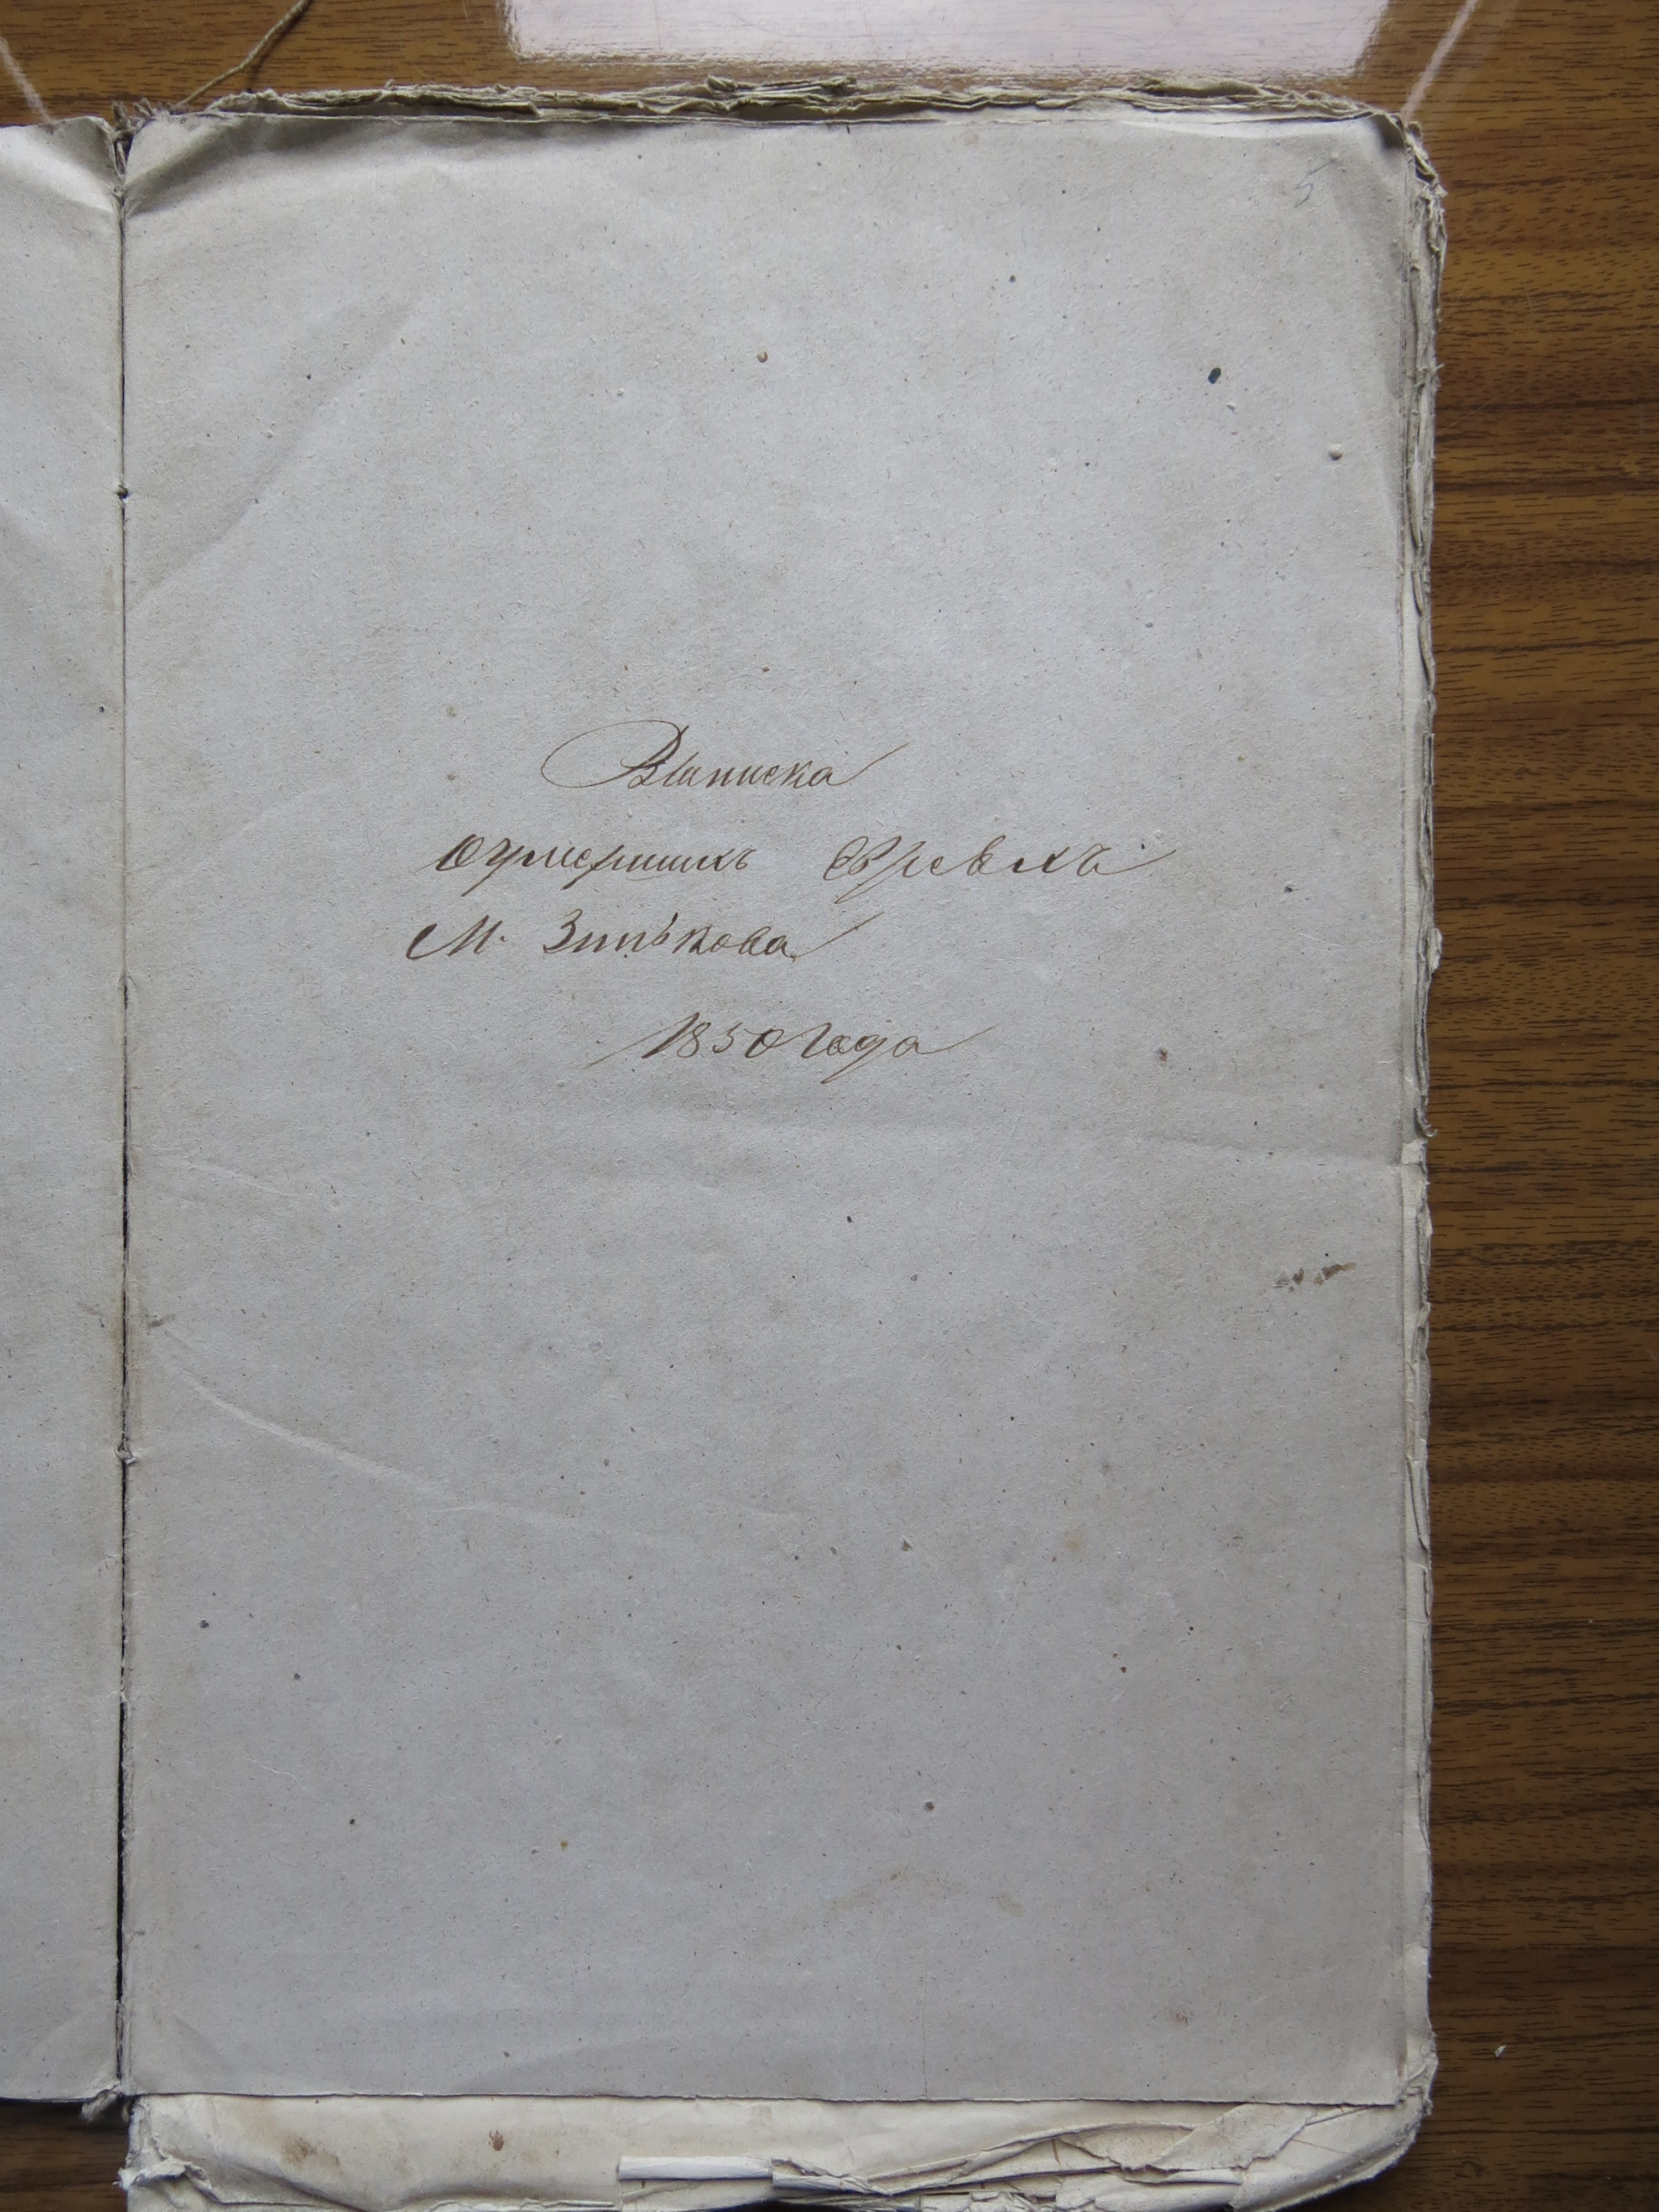 5
Выписка
оумершихъ Евреяхъ
М. Зинькова
1850 года